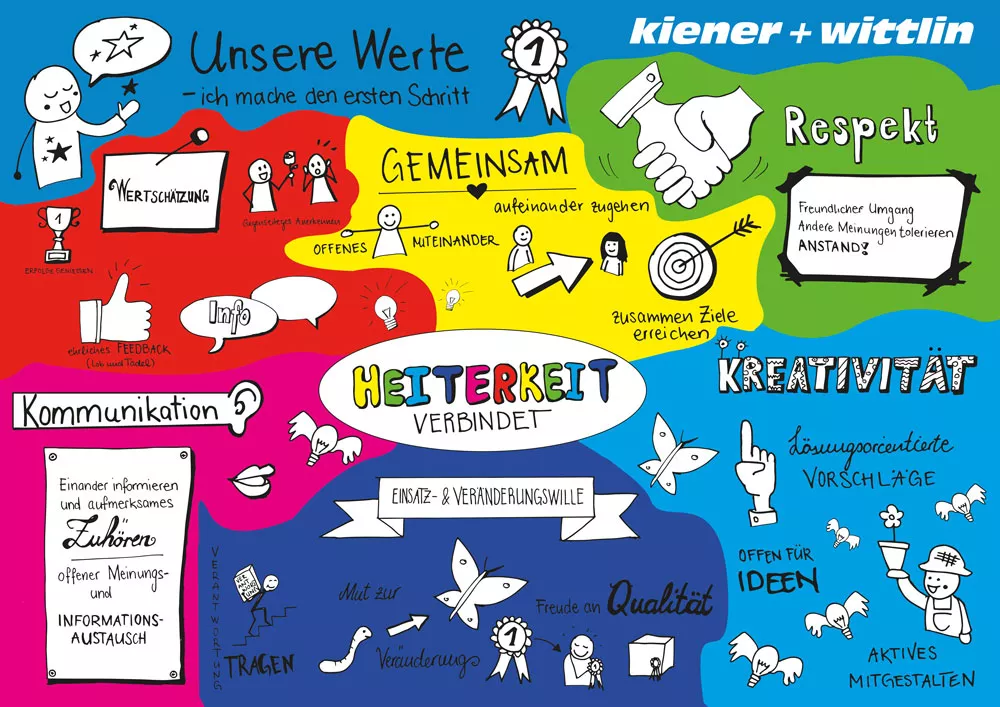 Unsere Werte
- ich mache den ersten Schritt
1
kiener + wittlin
WERTSCHÄTZUNG
Gegenseitiges Anerkennen
1
ERFOLGE GENIESSEN
ehrliches FEEDBACK
(Lob und Tadel)
Info
GEMEINSAM
aufeinander zugehen
OFFENES MITEINANDER
zusammen Ziele
erreichen
Respekt
Freundlicher Umgang
Andere Meinungen tolerieren
ANSTAND!
HEITERKEIT
VERBINDET
Kommunikation
Einander informieren
und aufmerksames
Zuhören
offener Meinungs-
und
INFORMATIONS-
AUSTAUSCH
EINSATZ- & VERÄNDERUNGSWILLE
VERANTWORTUNG
VER
ANT
WORT
UNG
TRAGEN
Mut zur
Veränderung
Freude an Qualität
1
KREATIVITÄT
Lösungsorientierte
VORSCHLÄGE
OFFEN FÜR
IDEEN
AKTIVES
MITGESTALTEN